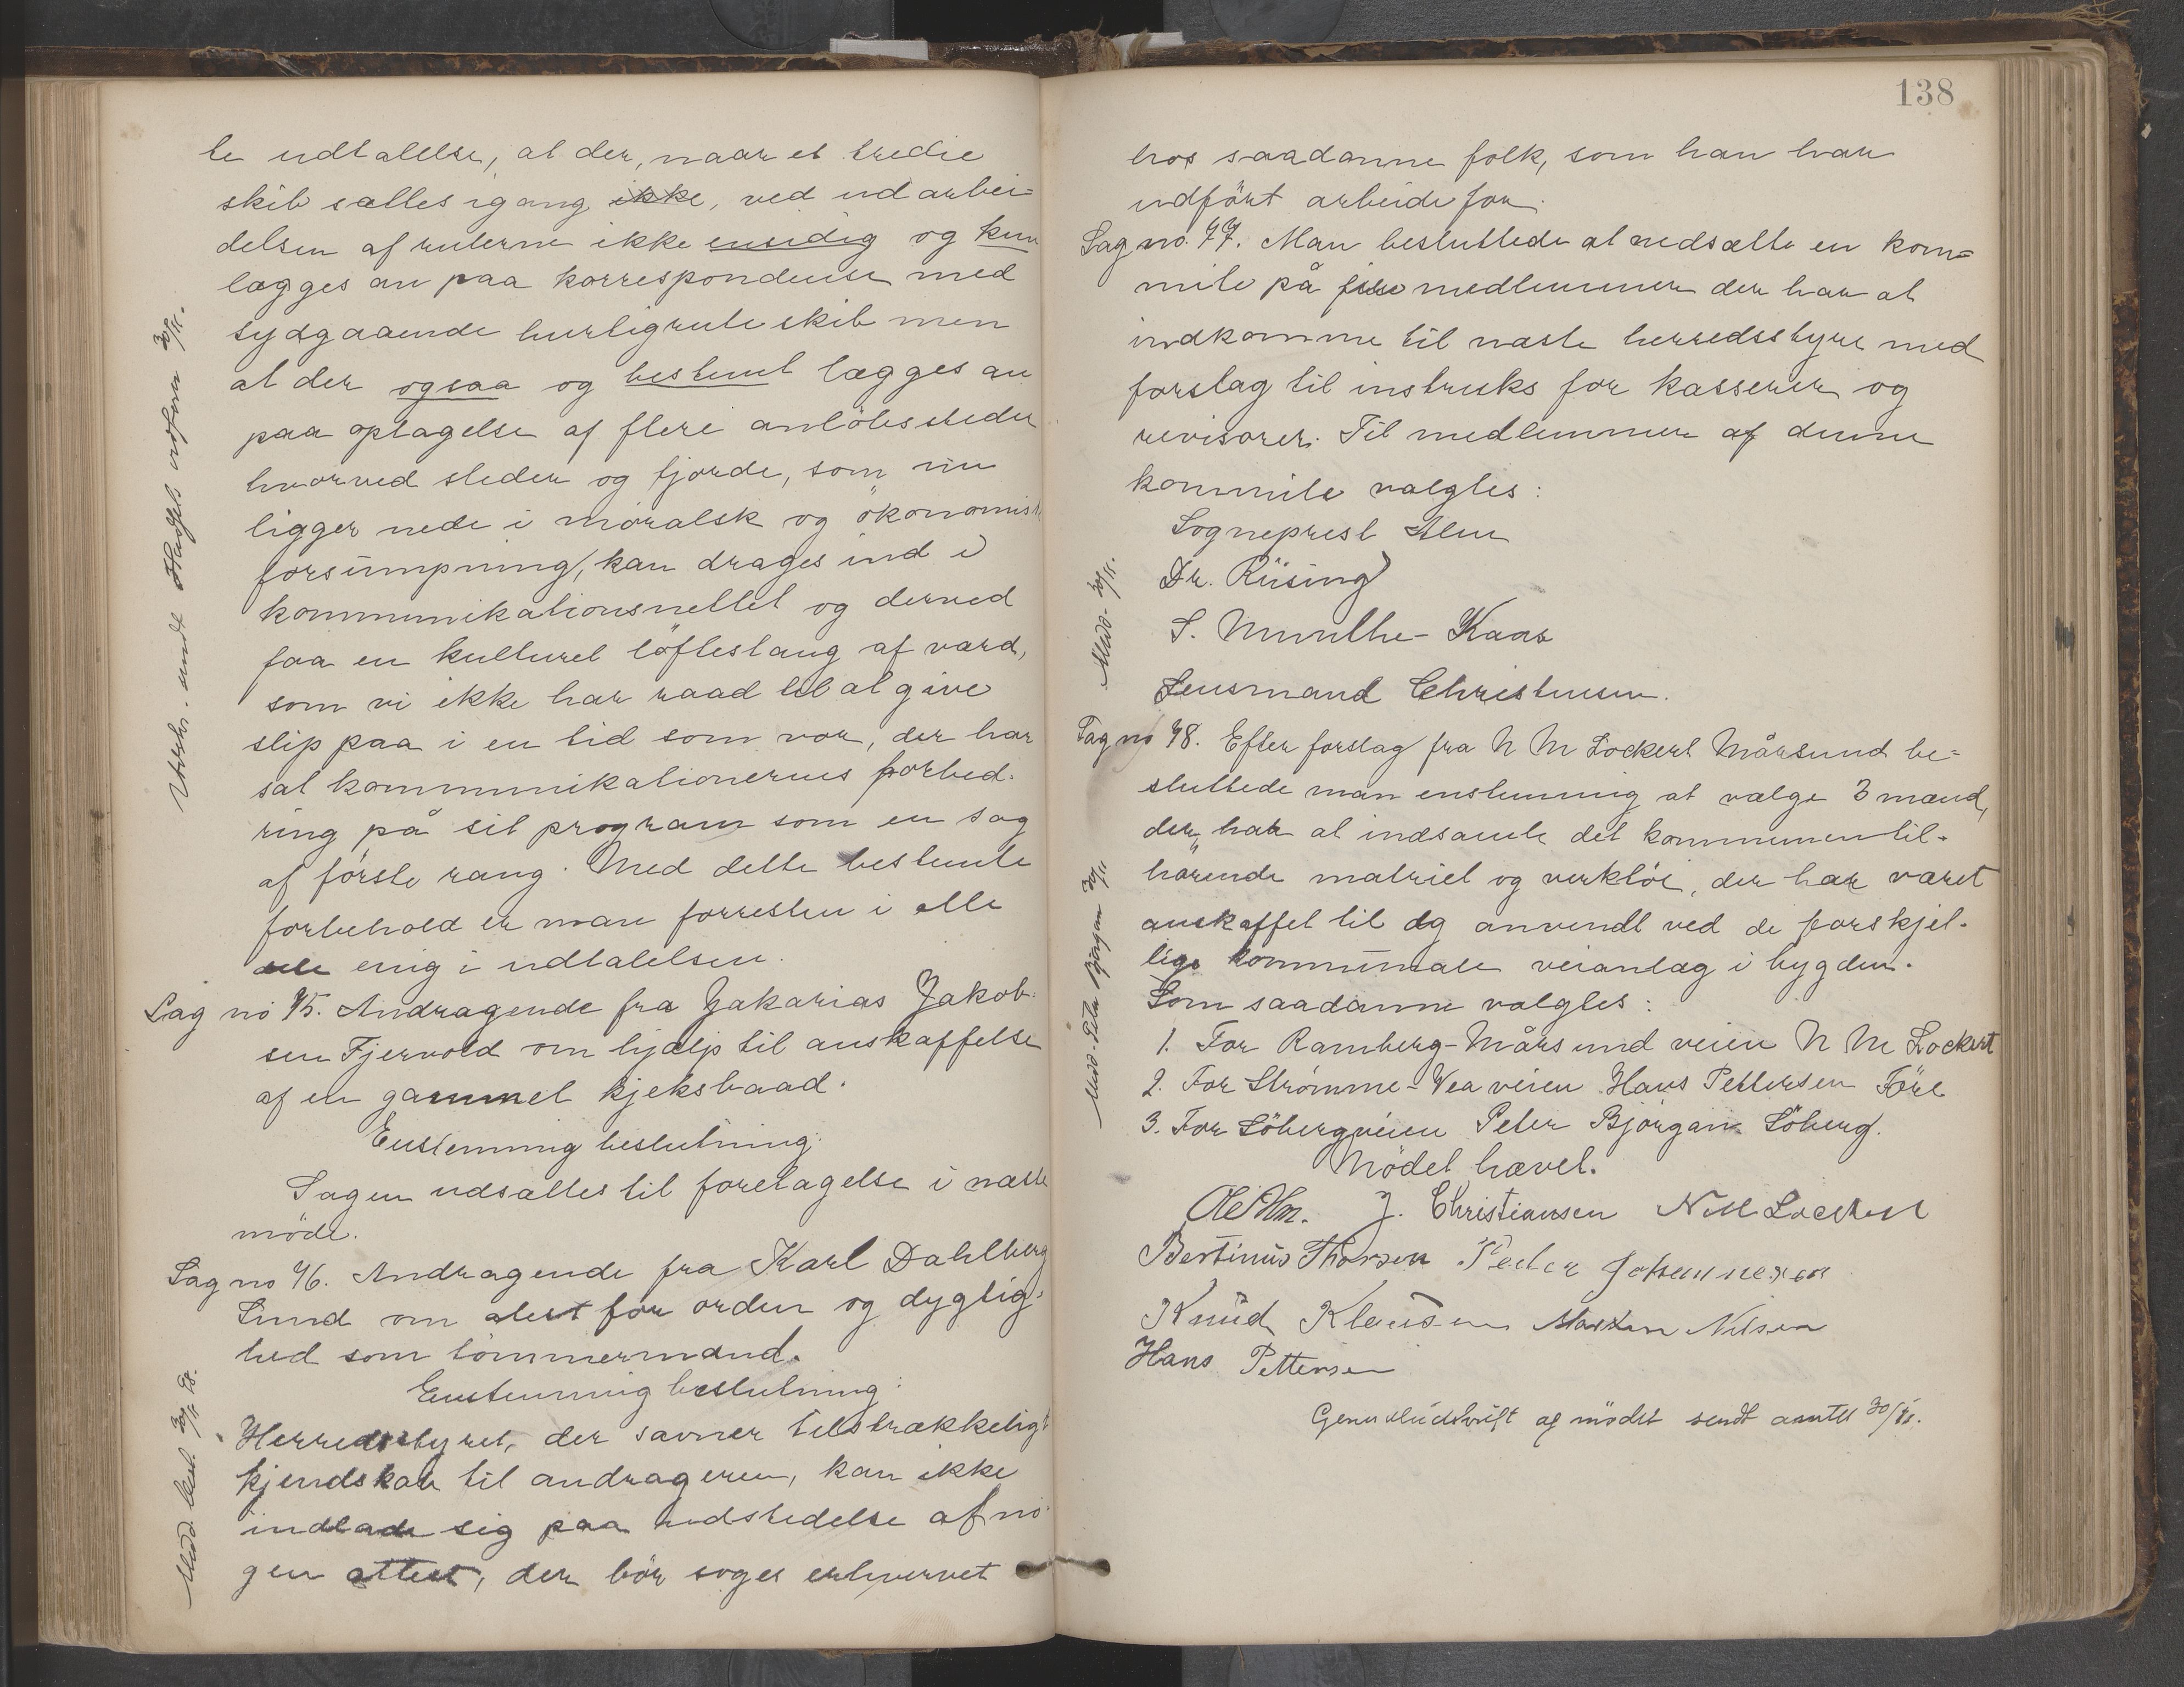 te udtalelse, at der, naar et tredie
skib sættes igang ikke, ved udarbei=
delsen af ruterne ikke ensidig og kun
lægges an paa korrespondense med
sydgaaende hurtigruteskib men
at der ogsaa og bestemt lægges an
paa optagelse af flere anlöbssteder
hvorved steder og fjorde, som nu
ligger nede i moralsk og ökonomisk
forsumpning, kan drages ind i
kommunikationsnettet og derved
faa en kulturel löftestang af værd,
som vi ikke har raad til at give
slip paa i en tid som vor, der har
sat kommunikationernes forbed-
ring på sit program som en sag
af förste rang. Med dette bestemte
forbehold er man forresten i alle
dele enig i udtalelsen.
Sag no 45. Andragende fra Zakarias Jakob-
sen Fjervold om hjælp til anskaffelse
af en gammel kjeksbaad.
Enstemmig beslutning:
Sagen udsættes til foretagelse i næste
möde.
Sag no 46. Andragende fra Karl Dahlberg
Sund om atest for orden og dygtig-
hed som tömmermand.
Enstemmig beslutning:
Herredsstyret, der savner tilstrækkeligt
kjendskab til andrageren, kan ikke
indlade sig paa udstedelse af no-
gen attest, der bör söges erhvervet
Utskr. sendt 30/11.
Medd. best. 30/11 98.
138
hos saadanne folk, som han har
udfört arbeide for.
Sag no 47. Man besluttede at nedsætte en kom=
mite på fire medlemmer der har at
indkomme til næste herredsstyre med
forslag til instruks for kasserer og
revisorer. Til medlemmer af denne
kommite valgtes:
Sogneprest Alm
Dr. Riising
S. Munthe-Kaas
Lensmand Christensen.
Sag no 48. Efter forslag fra N M Lockert Mårsund be=
sluttede man enstemmig at vælge 3 mænd,
der har at indsamle det kommunen til-
hörende matriel og verktöi, der har været
anskaffet til og anvendt ved de forskjel-
lige kommunale veianlæg i bygden.
Som saadanne valgtes:
1. For Ramberg-Mårsund veien N M Lockert
2. For Strömme-Vea veien Hans Pettersen Före
3. For Söbergveien Peter Björgan Söberg.
Mödet hævet.
Ole Alm. J. Christiansen N M Lockert
Bertinus Thorsen Peder Johannesen
Knud Klausen Morten Nilsen
Hans Pettersen
Genpartudskrift af mödet sendt amtet 30/11.
Medd. 30/11.
Medd. Peter Björgan 30/11